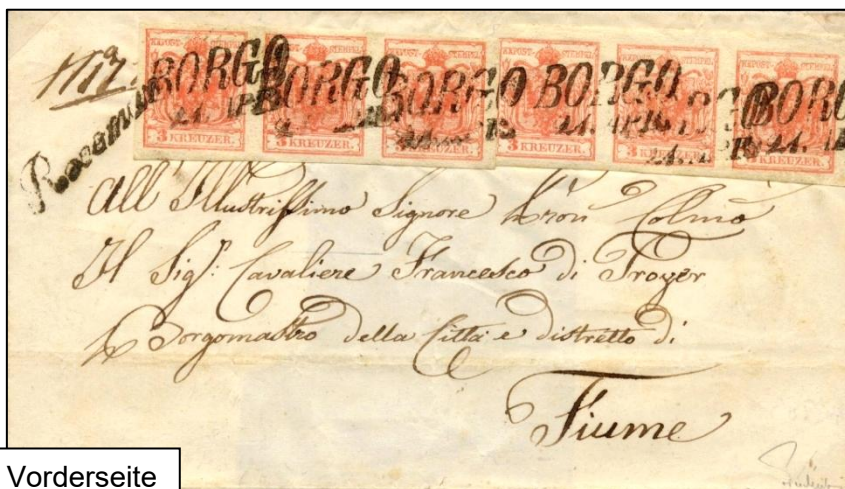 BORGO BORGO BORGO BORGO BORGO BORGO
21. APR
3 KREUZER. 3 KREUZER. 3 KREUZER. 3 KREUZER. 3 KREUZER. 3 KREUZER.
All Illustrissimo Signore
Il Sigr: Cavaliere Francesco di Troyer
Borgomastro della Città e distretto di
Fiume
Vorderseite